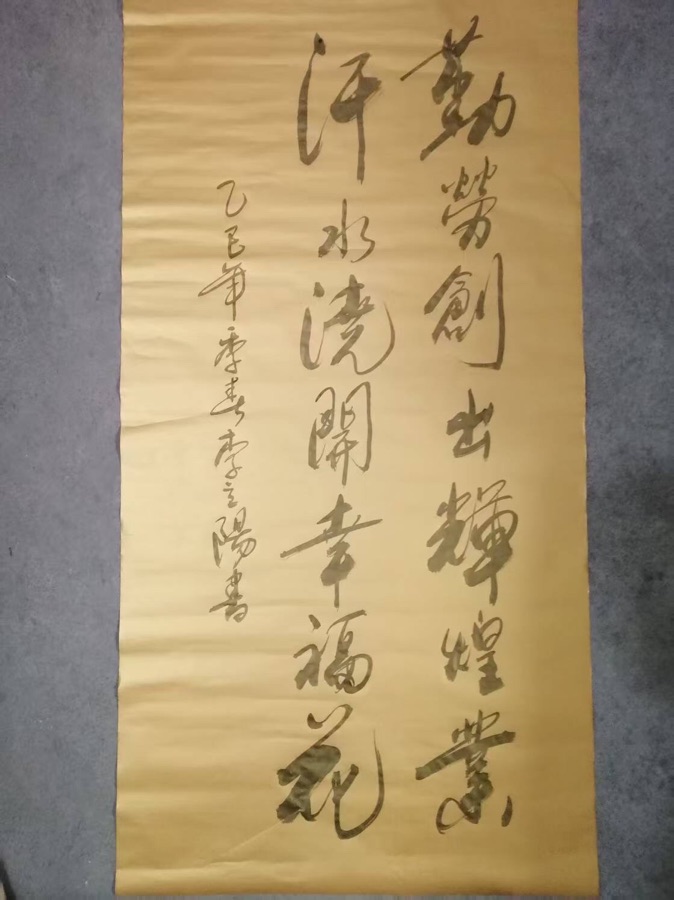 勤勞創出輝煌業
汗水澆開幸福花
乙巳年季春李立陽書